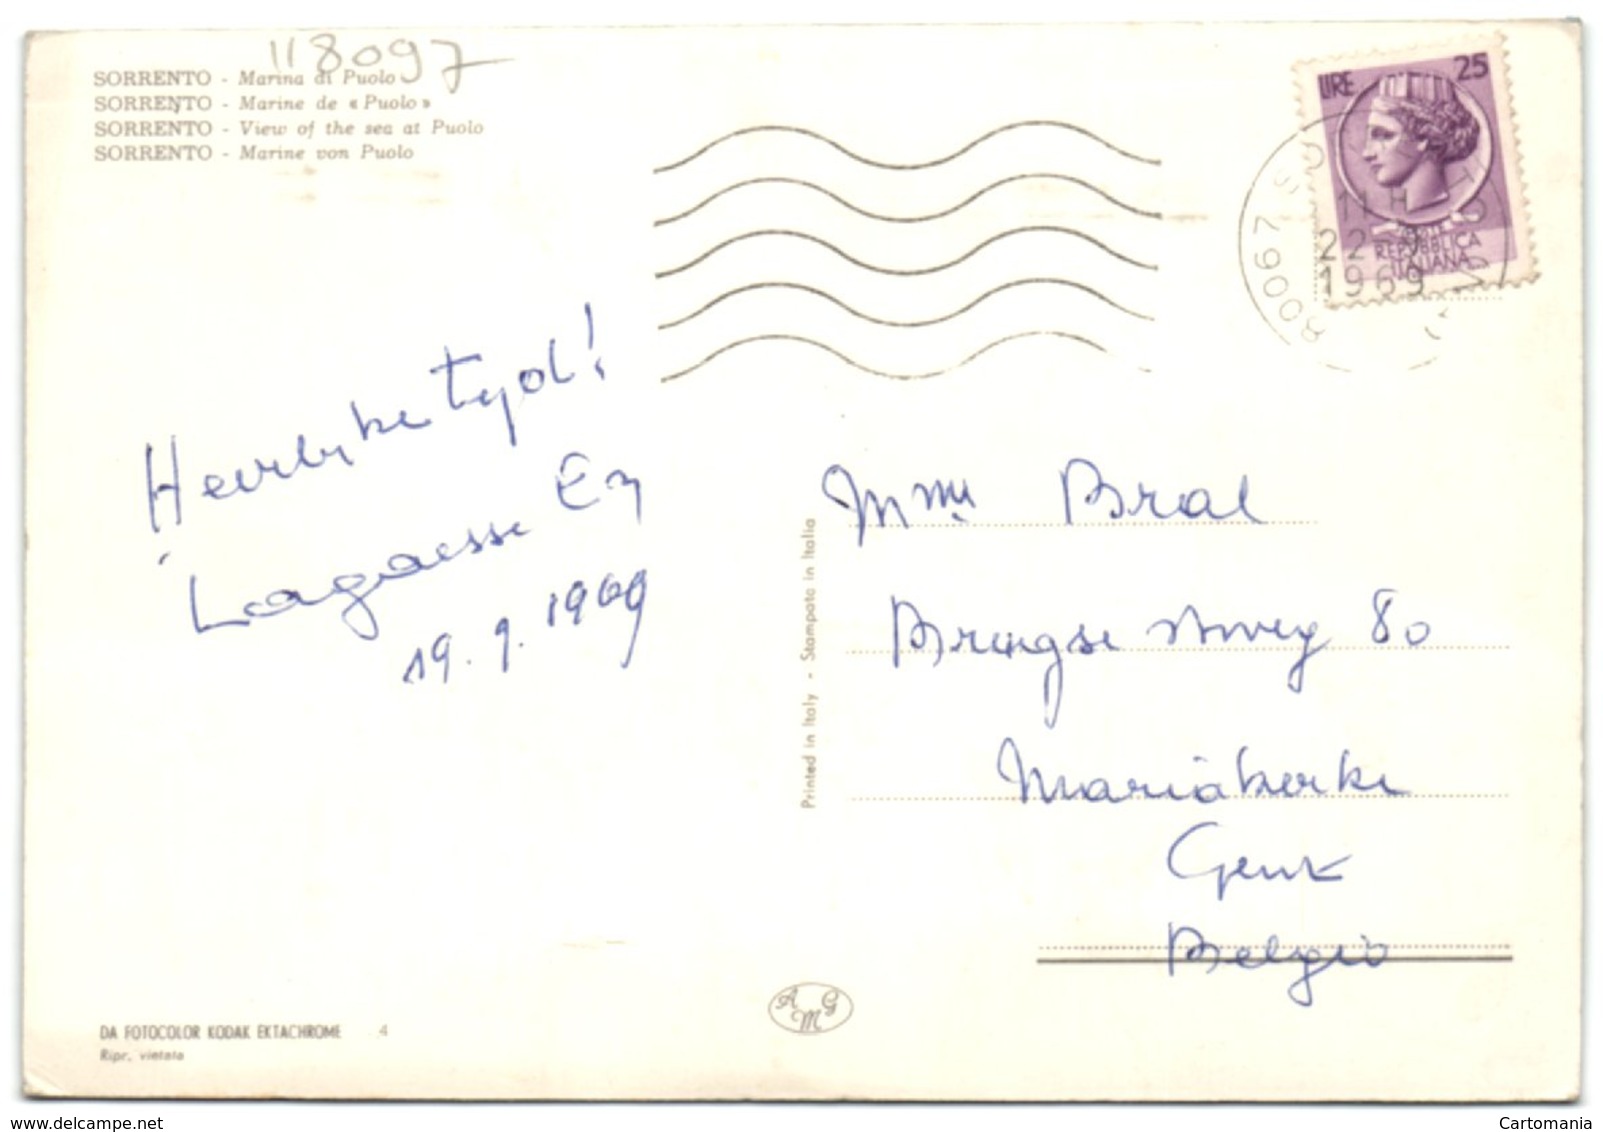 118097
SORRENTO - Marina di Puolo
SORRENTO - Marine de « Puolo »
SORRENTO - View of the sea at Puolo
SORRENTO - Marine von Puolo
LIRE 25
POSTE
REPUBBLICA
ITALIANA
80067 SO
11 H
22-
1969
Heerlyke tyd!
Lagaesse
19.9.1969
Printed in Italy - Stampato in Italia
Mme Bral
80
Mariakerke
Gent
Belgio
A M G
DA FOTOCOLOR KODAK EKTACHROME 4
Ripr. vietata
delcampe.net
Cartomania